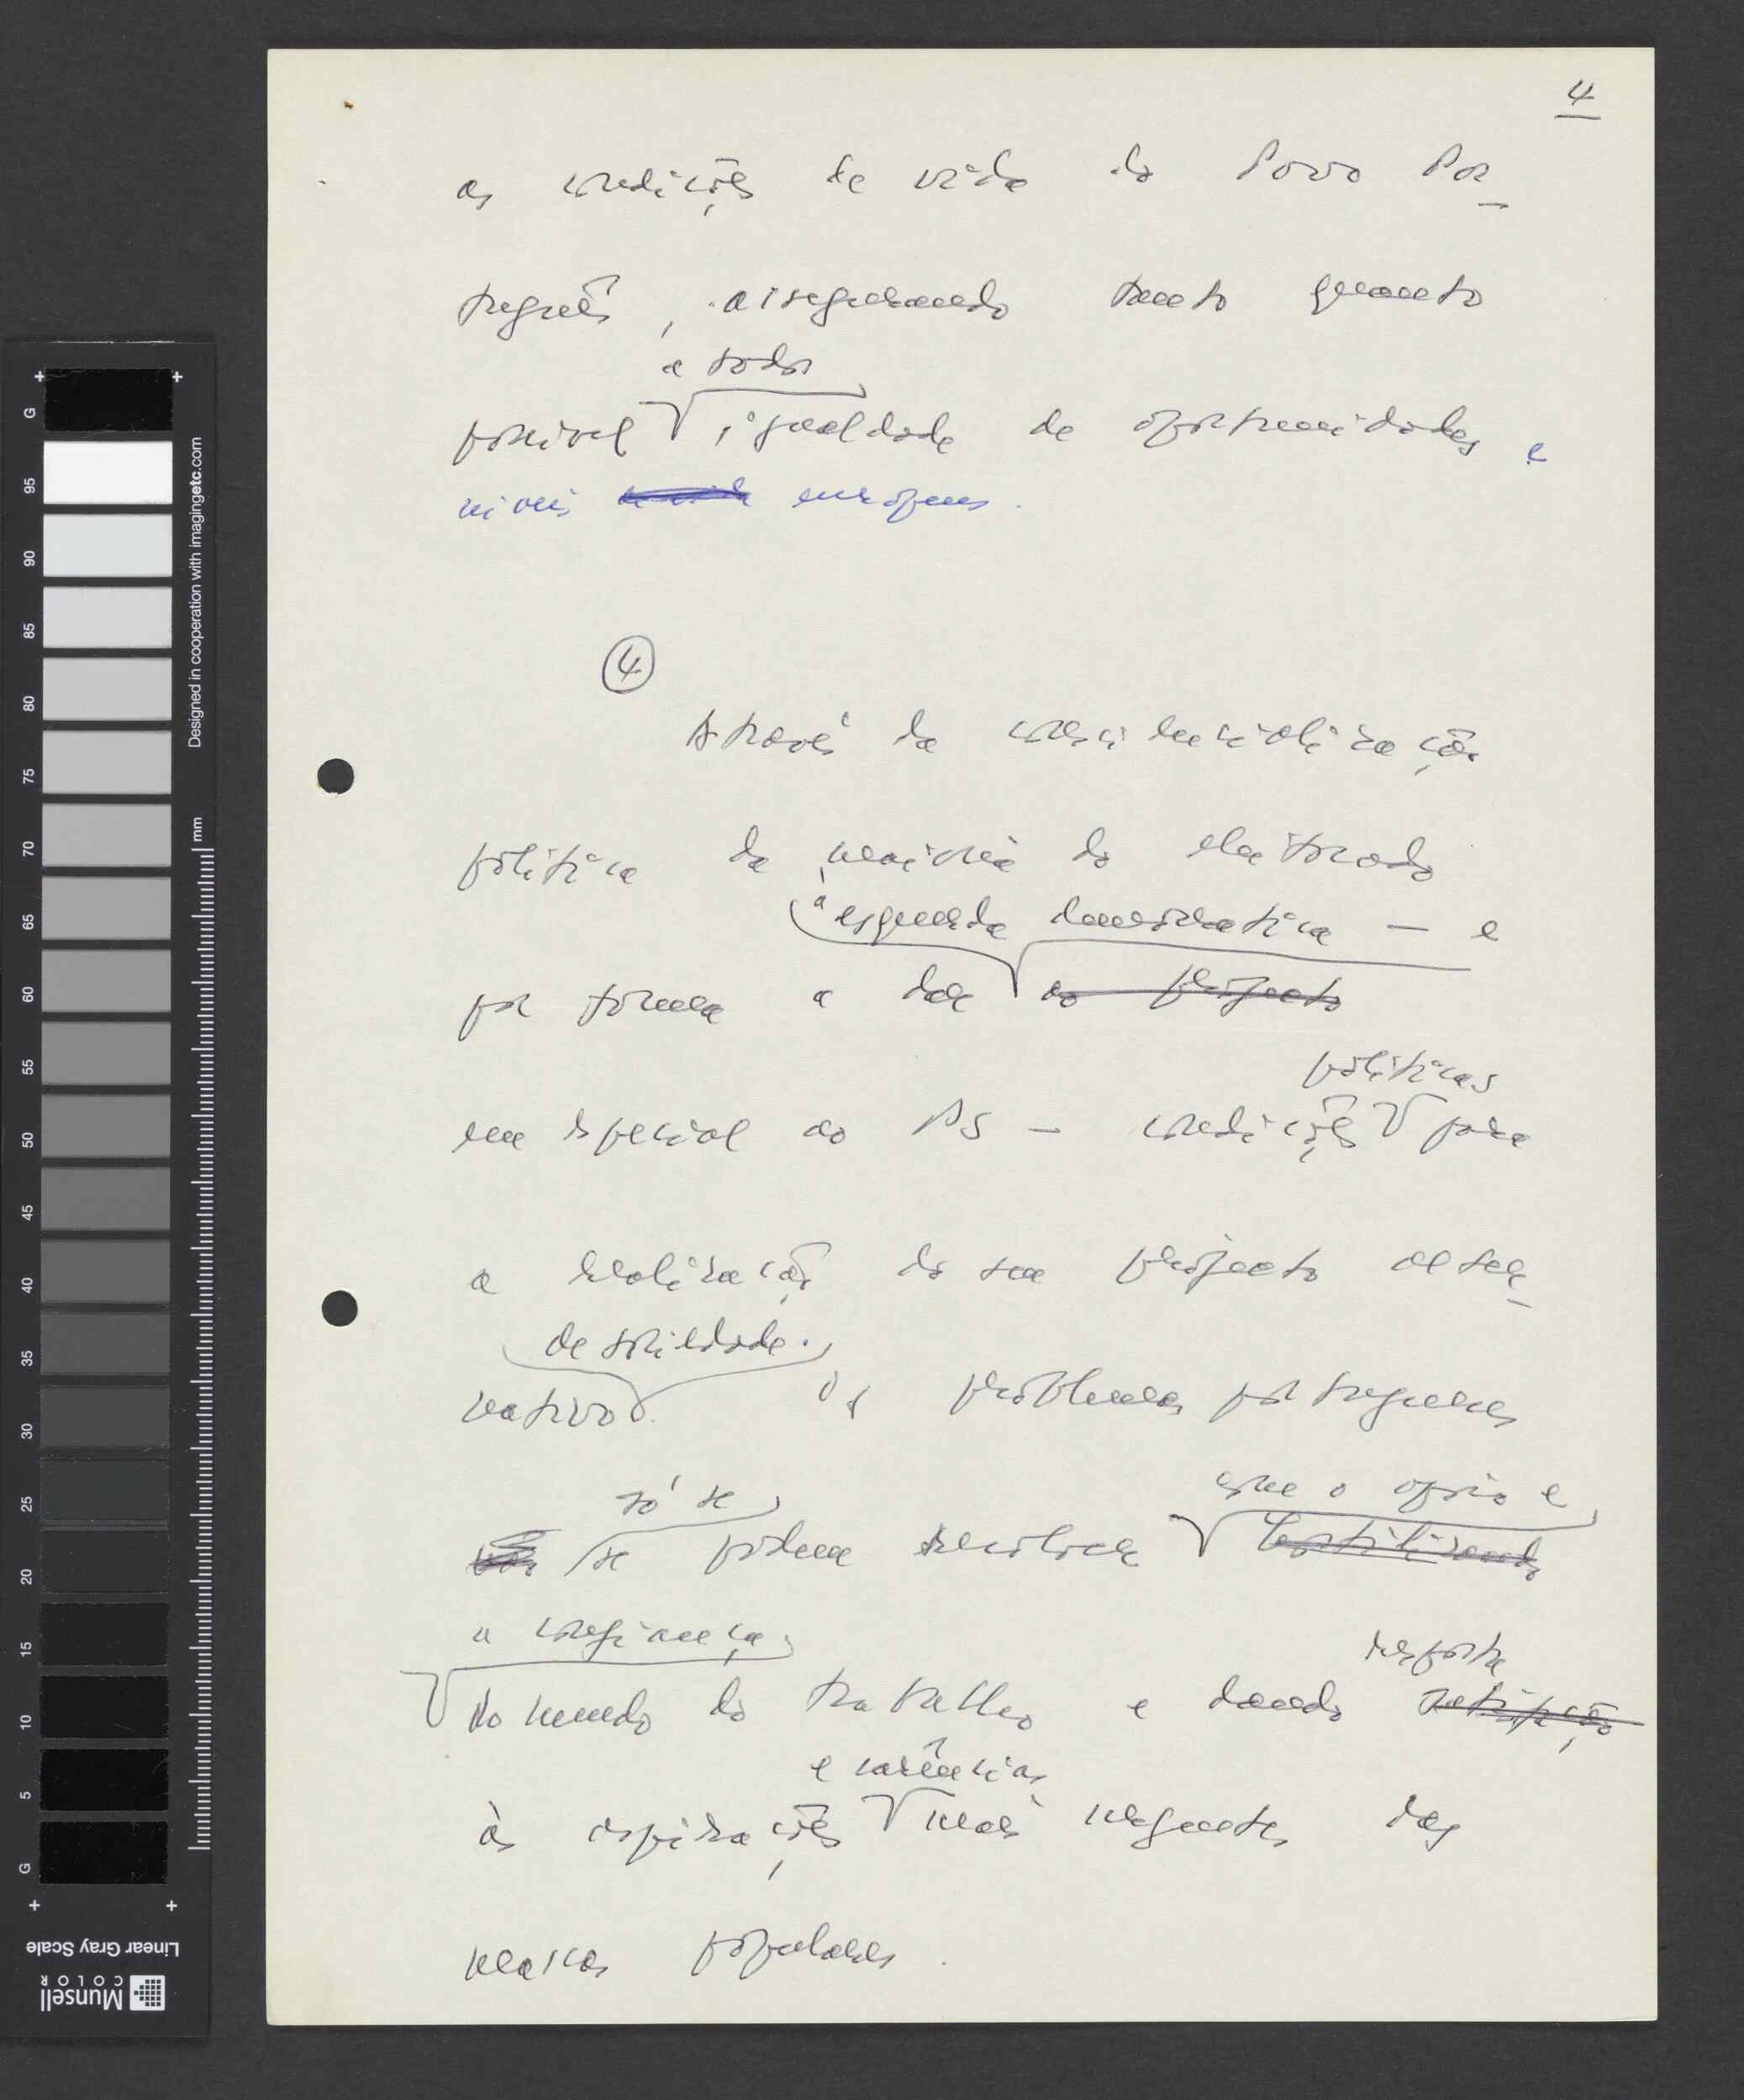 4
as condições de vida do Povo Por-
tuguês, assegurando tanto quanto
a todos
possível igualdade de oportunidades e
níveis de vida europeus.
4
Através da consciencialização
política da maioria do eleitorado
à esquerda democrática — e
por forma a dar ao projecto
políticas
em especial ao PS — condições para
a realização do seu projecto alter-
de sociedade.
nativo. Os problemas portugueses
só se
se podem resolver
com o apoio e
hostilizando
a confiança
do mundo do trabalho e dando satisfação
resposta
e carências
às aspirações mais urgentes das
massas populares.
G
95
90
85
80
75
70
65
60
55
50
45
40
35
30
25
20
15
10
5
G
mm
Designed in cooperation with imagingetc.com
Linear Gray Scale
Munsell
COLOR